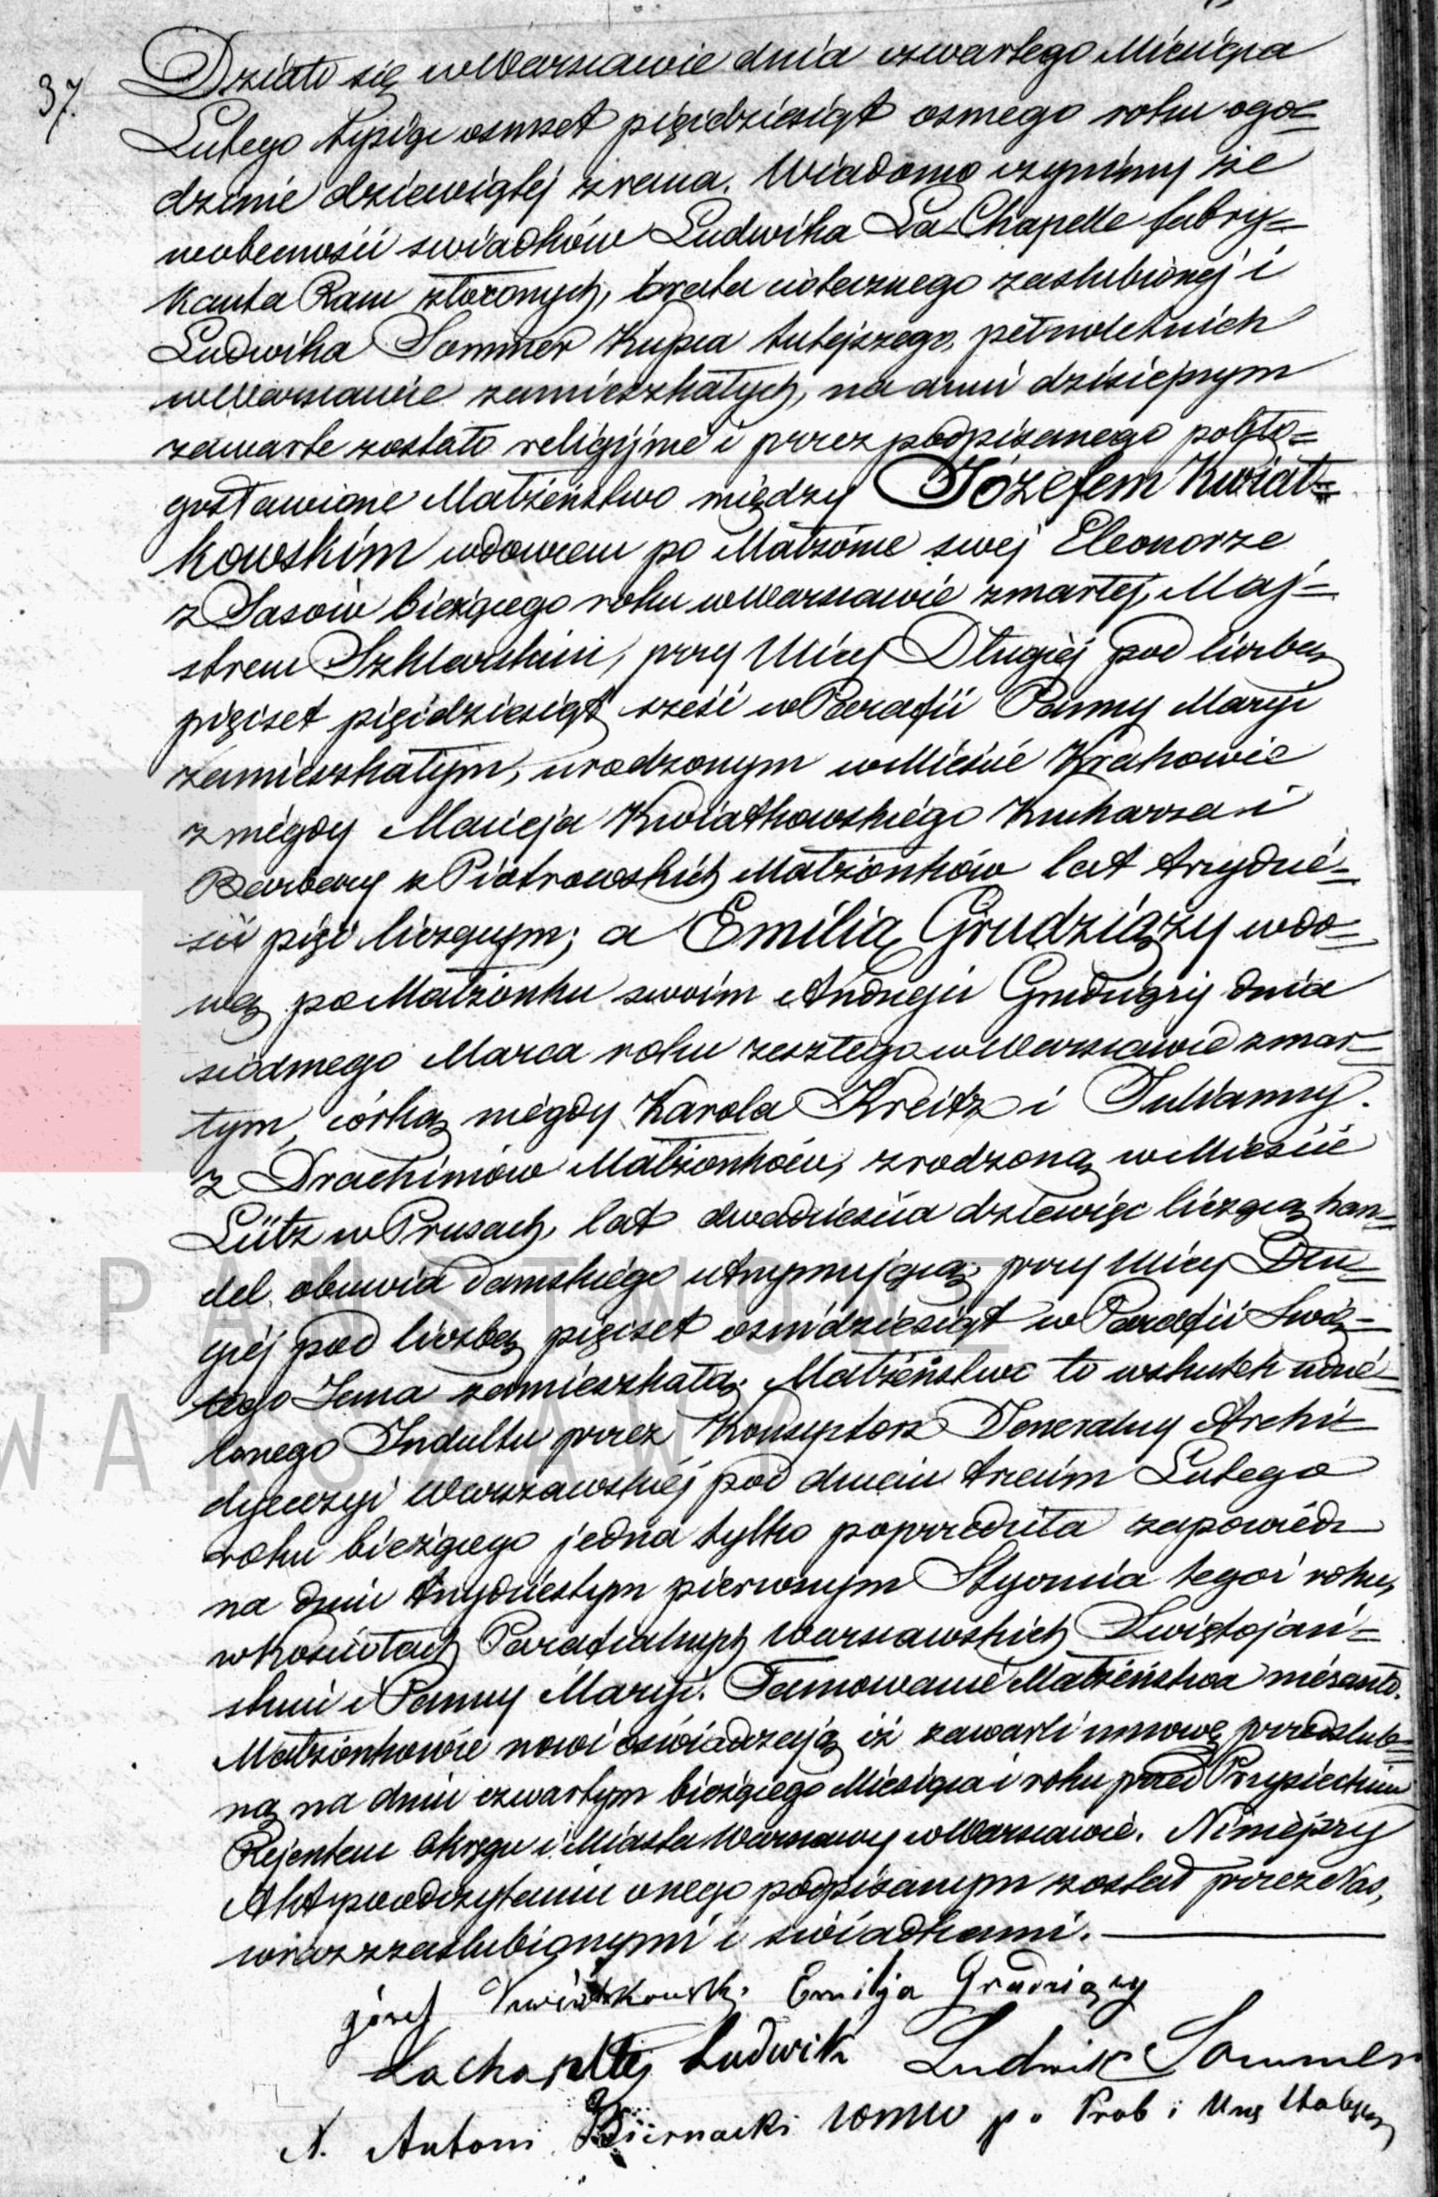 37.
Działo się w Warszawie dnia czwartego Miesiąca
Lutego tysiąc osmset pięćdziesiąt osmego roku o go=
dzinie dziewiątej zrana. Wiadomo czynimy że
w obecności świadków Ludwika La Chapelle fabry=
kanta Ram złoconych, brata ciotecznego zaślubionej i
Ludwika Sommer Kupca tutejszego, pełnoletnich
w Warszawie zamieszkałych, na dniu dzisiejszym
zawarte zostało religijne i przez podpisanego pobło=
gosławione Małżeństwo między Józefem Kwiat=
kowskim wdowcem po Małżonce swej Eleonorze
z Sasów bieżącego roku w Warszawie zmarłej, Maj=
strem Szklarskim, przy Ulicy Długiej pod liczbą
pięćset pięćdziesiąt sześć w Parafii Panny Maryi
zamieszkałym, urodzonym w Mieście Krakowie
z niegdy Macieja Kwiatkowskiego Kucharza i
Barbary z Piotrowskich Małżonków lat trzydzie=
ści pięć liczącym; a Emilią Grudziąży wdo=
wą po Małżonku swoim Andrzeju Grudziąży dnia
siódmego Marca roku zeszłego w Warszawie zmar=
łym, córką niegdy Karola Kreitz i Julianny
z Drachimów Małżonków, zrodzoną w Mieście
Lütz w Prusach, lat dwadzieścia dziewięć liczącą han=
del obuwia damskiego utrzymującą przy Ulicy Dłu=
giej pod liczbą pięćset ośmdziesiąt w Parafii Świę=
tego Jana zamieszkałą. Małżeństwo to wskutek udzie=
lonego Indultu przez Konsystorz Jeneralny Archi=
dyecezyi Warszawskiej pod dniem trzecim Lutego
roku bieżącego jedna tylko poprzedziła zapowiedź
na dniu trzydziestym pierwszym Stycznia tegoż roku,
w Kościołach Parafialnych Warszawskich Świętojań=
skim i Panny Maryi. Tamowanie Małżeństwa niezaszło.
Małżonkowie nowi oświadczają iż zawarli umowę przedślub=
ną na dniu czwartym bieżącego Miesiąca i roku przed Przysieckim
Rejentem Okręgu i Miasta Warszawy w Warszawie. Niniejszy
Akt po odczytaniu onego podpisanym został przez Nas,
wraz z zaślubionymi i świadkami.
Józef Kwiatkowski Emilja Grudziąży
Lachapelle Ludwik Ludwik Sommer
X. Antoni Biernacki p. o. Prob i Urz
PAŃSTWOWE
WARSZAWY